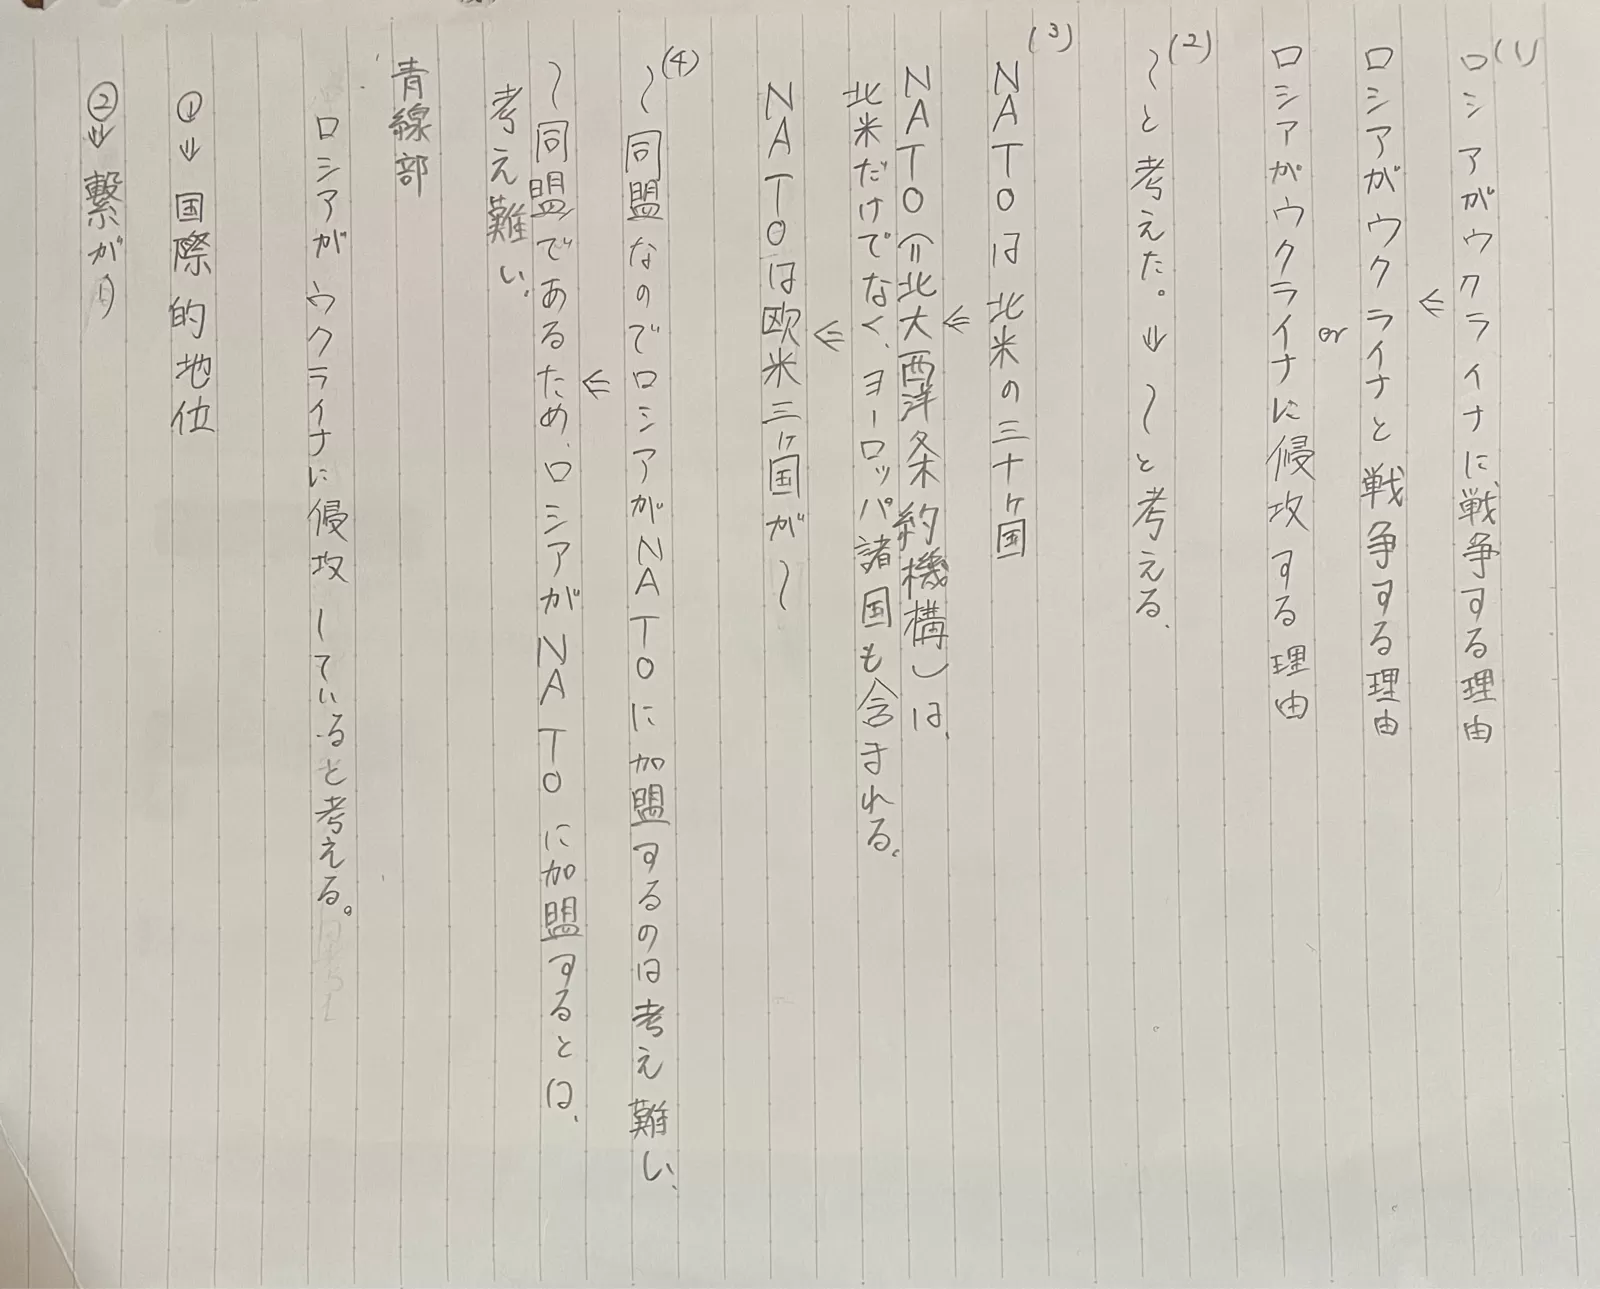 (1)
ロシアがウクライナに戦争する理由
⇓
ロシアがウクライナと戦争する理由
or
ロシアがウクライナに侵攻する理由
(2)
〜と考えた。⇓〜と考える。
(3)
NATOは北米の三十ヶ国
⇓
NATO(=北大西洋条約機構)は、
北米だけでなく、ヨーロッパ諸国も含まれる。
⇓
NATOは欧米三ヶ国が〜
(4)
〜同盟なのでロシアがNATOに加盟するのは考え難い、
⇓
〜同盟であるため、ロシアがNATOに加盟するとは、
考え難い。
青線部
ロシアがウクライナに侵攻していると考える。
①⇓国際的地位
②⇓繋がり